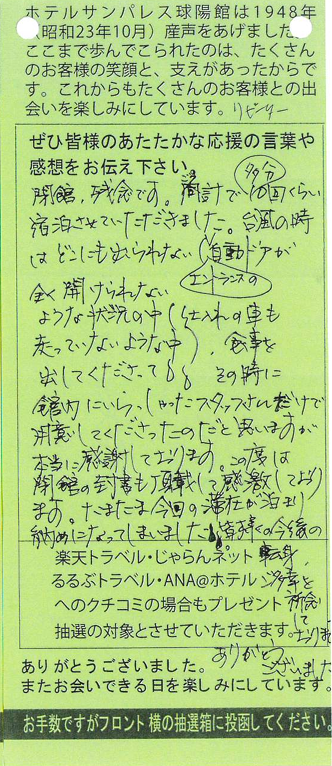 ホテルサンパレス球陽館は1948年
(昭和23年10月)産声をあげました。
ここまで歩んでこられたのは、たくさん
のお客様の笑顔と、支えがあったからで
す。これからもたくさんのお客様との出
会いを楽しみにしています。リピーター
ぜひ皆様のあたたかな応援の言葉や
感想をお伝え下さい。多分
閉館、残念です。合計で10回くらい
宿泊させていただきました。台風の時
はどこにも出られない(自動ドアが
エントランスの
全く開けられない
ような状況の中(仕入れの車も
走っていないような中)、食事を
出してくださって。その時に
館内にいらっしゃったスタッフさんだけで
用意してくださったのだと思いますが
本当に感謝しております。この度は
閉館の封書も頂戴して感激しており
ます。たまたま今回の滞在が泊まり
納めになってしまいました。皆様の今後の
楽天トラベル・じゃらんネット 転身、
るるぶトラベル・ANA@ホテル ご多幸を
へのクチコミの場合もプレゼント 祈念
して
抽選の対象とさせていただきます。おります
ありがとう
ございました
ありがとうございました。
またお会いできる日を楽しみにしています。
お手数ですがフロント横の抽選箱に投函してください。